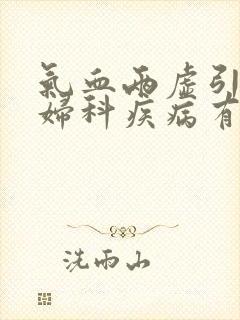 氣血兩虛引
婦科疾病有
洗雨山